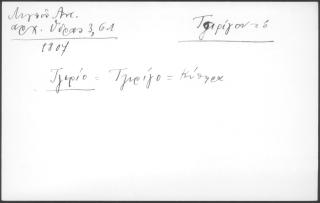 Λιγνοῦ Ἀντ.
ἀρχ. Ὕδρας 3, 61
1807
Τζιρίγον τό
Τζερίο = Τζιρίγο = Κύθηρα